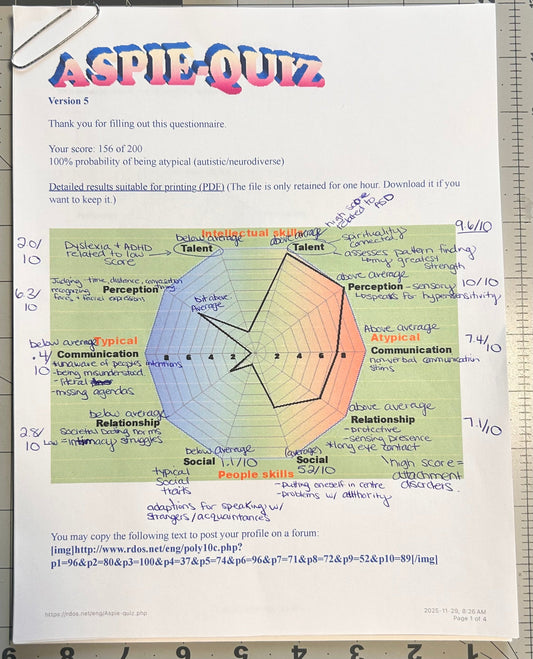 ASPIE-QUIZ
Version 5
Thank you for filling out this questionnaire.
Your score: 156 of 200
100% probability of being atypical (autistic/neurodiverse)
Detailed results suitable for printing (PDF) (The file is only retained for one hour. Download it if you
want to keep it.)
high score
related to ASD
Intellectual skills
9.6/10
below average
above average
2.0/
10
Dyslexia + ADHD
related to low
score
Talent
Talent
spirituality
connected
assesses pattern finding
↳my greatest
strength
Judging - time, distance,
recognizing
faces + facial expression
above average
6.3/
10
Perception
Perception - sensory
10/10
↳speaks for hypersensitivity
bit above
Average
below average
Typical
Above average
Atypical
7.4/
10
.4/
10
Communication
8 6 4 2
2 4 6 8
Communication
non-verbal communication
stims
•unaware of peoples intentions
-being misunderstood
-literal
-missing agendas
below average
above average
Relationship
Relationship
7.1/10
2.8/
10
Societal Dating norms
Low = intimacy struggles
-protective
-sensing presence
*long eye contact
below average
(average)
Social 1.1/10
Social
5.2/10
People skills
high score =
attachment
disorders.
typical
social
traits
-putting oneself in centre
-problems w/ authority
adaptions for speaking w/
strangers/acquaintances
You may copy the following text to post your profile on a forum:
[img]http://www.rdos.net/eng/poly10c.php?
p1=96&p2=80&p3=100&p4=37&p5=74&p6=96&p7=71&p8=72&p9=52&p10=89[/img]
https://rdos.net/eng/Aspie-quiz.php
2025-11-29, 8:26 AM
Page 1 of 4
9 8 7 6 5 4 3 2 1